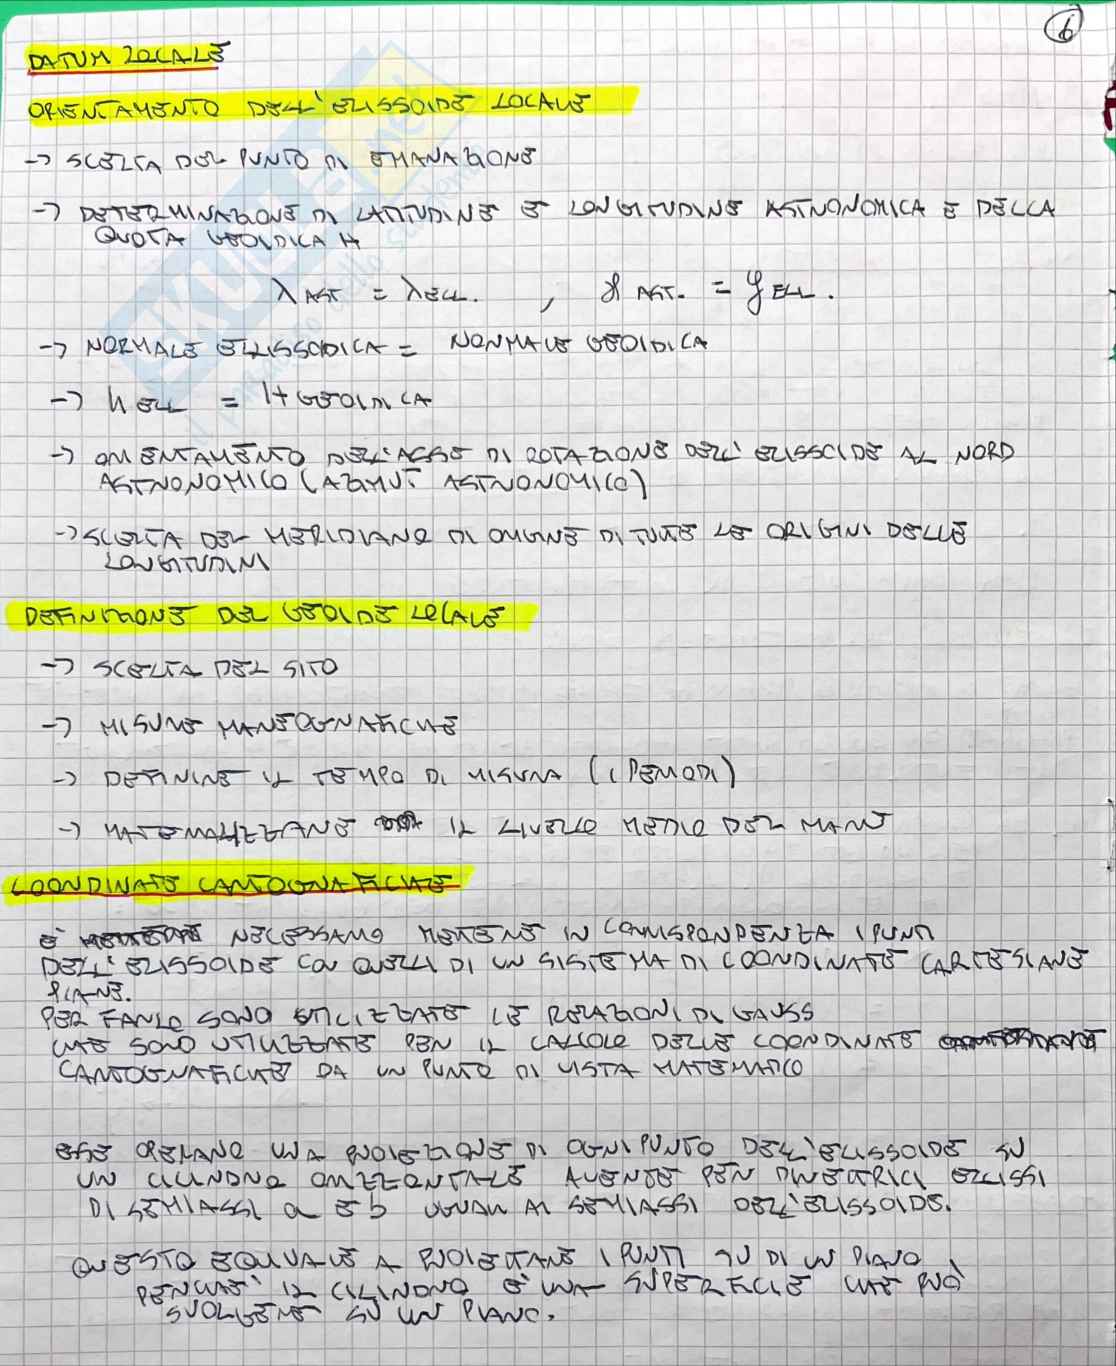 6
DATUM LOCALE
ORIENTAMENTO DELL'ELISSOIDE LOCALE
→ SCELTA DEL PUNTO DI EMANAZIONE
→ DETERMINAZIONE DI LATITUDINE E LONGITUDINE ASTRONOMICA E DELLA
QUOTA GEOIDICA H
λ AST = λ ELL. , φ AST. = φ ELL.
→ NORMALE ELLISSOIDICA = NORMALE GEOIDICA
→ h ELL = H GEOIDICA
→ ORIENTAMENTO DELL'ASSE DI ROTAZIONE DELL'ELISSOIDE AL NORD
ASTRONOMICO (AZIMUT ASTRONOMICO)
→ SCELTA DEL MERIDIANO DI ORIGINE DI TUTTE LE ORIGINI DELLE
LONGITUDINI
DEFINIZIONE DEL GEOIDE LOCALE
→ SCELTA DEL SITO
→ MISURE MAREOGRAFICHE
→ DEFINIRE IL TEMPO DI MISURA (I PERIODI)
→ MATERIALIZZARE IL LIVELLO MEDIO DEL MARE
COORDINATE CARTOGRAFICHE
È NECESSARIO METTERE IN CORRISPONDENZA I PUNTI
DELL'ELISSOIDE CON QUELLI DI UN SISTEMA DI COORDINATE CARTESIANE
PIANE.
PER FARLO SONO UTILIZZATE LE RELAZIONI DI GAUSS
CHE SONO UTILIZZATE PER IL CALCOLO DELLE COORDINATE
CARTOGRAFICHE DA UN PUNTO DI VISTA MATEMATICO
ESSE OPERANO UNA PROIEZIONE DI OGNI PUNTO DELL'ELISSOIDE SU
UN CILINDRO ORIZZONTALE AVENTE PER DIRETTRICI ELLISSI
DI SEMIASSI a E b UGUALI AI SEMIASSI DELL'ELISSOIDE.
QUESTO EQUIVALE A PROIETTARE I PUNTI SU DI UN PIANO
PERCHÉ IL CILINDRO È UNA SUPERFICIE CHE PUÒ
SVOLGERE SU UN PIANO.